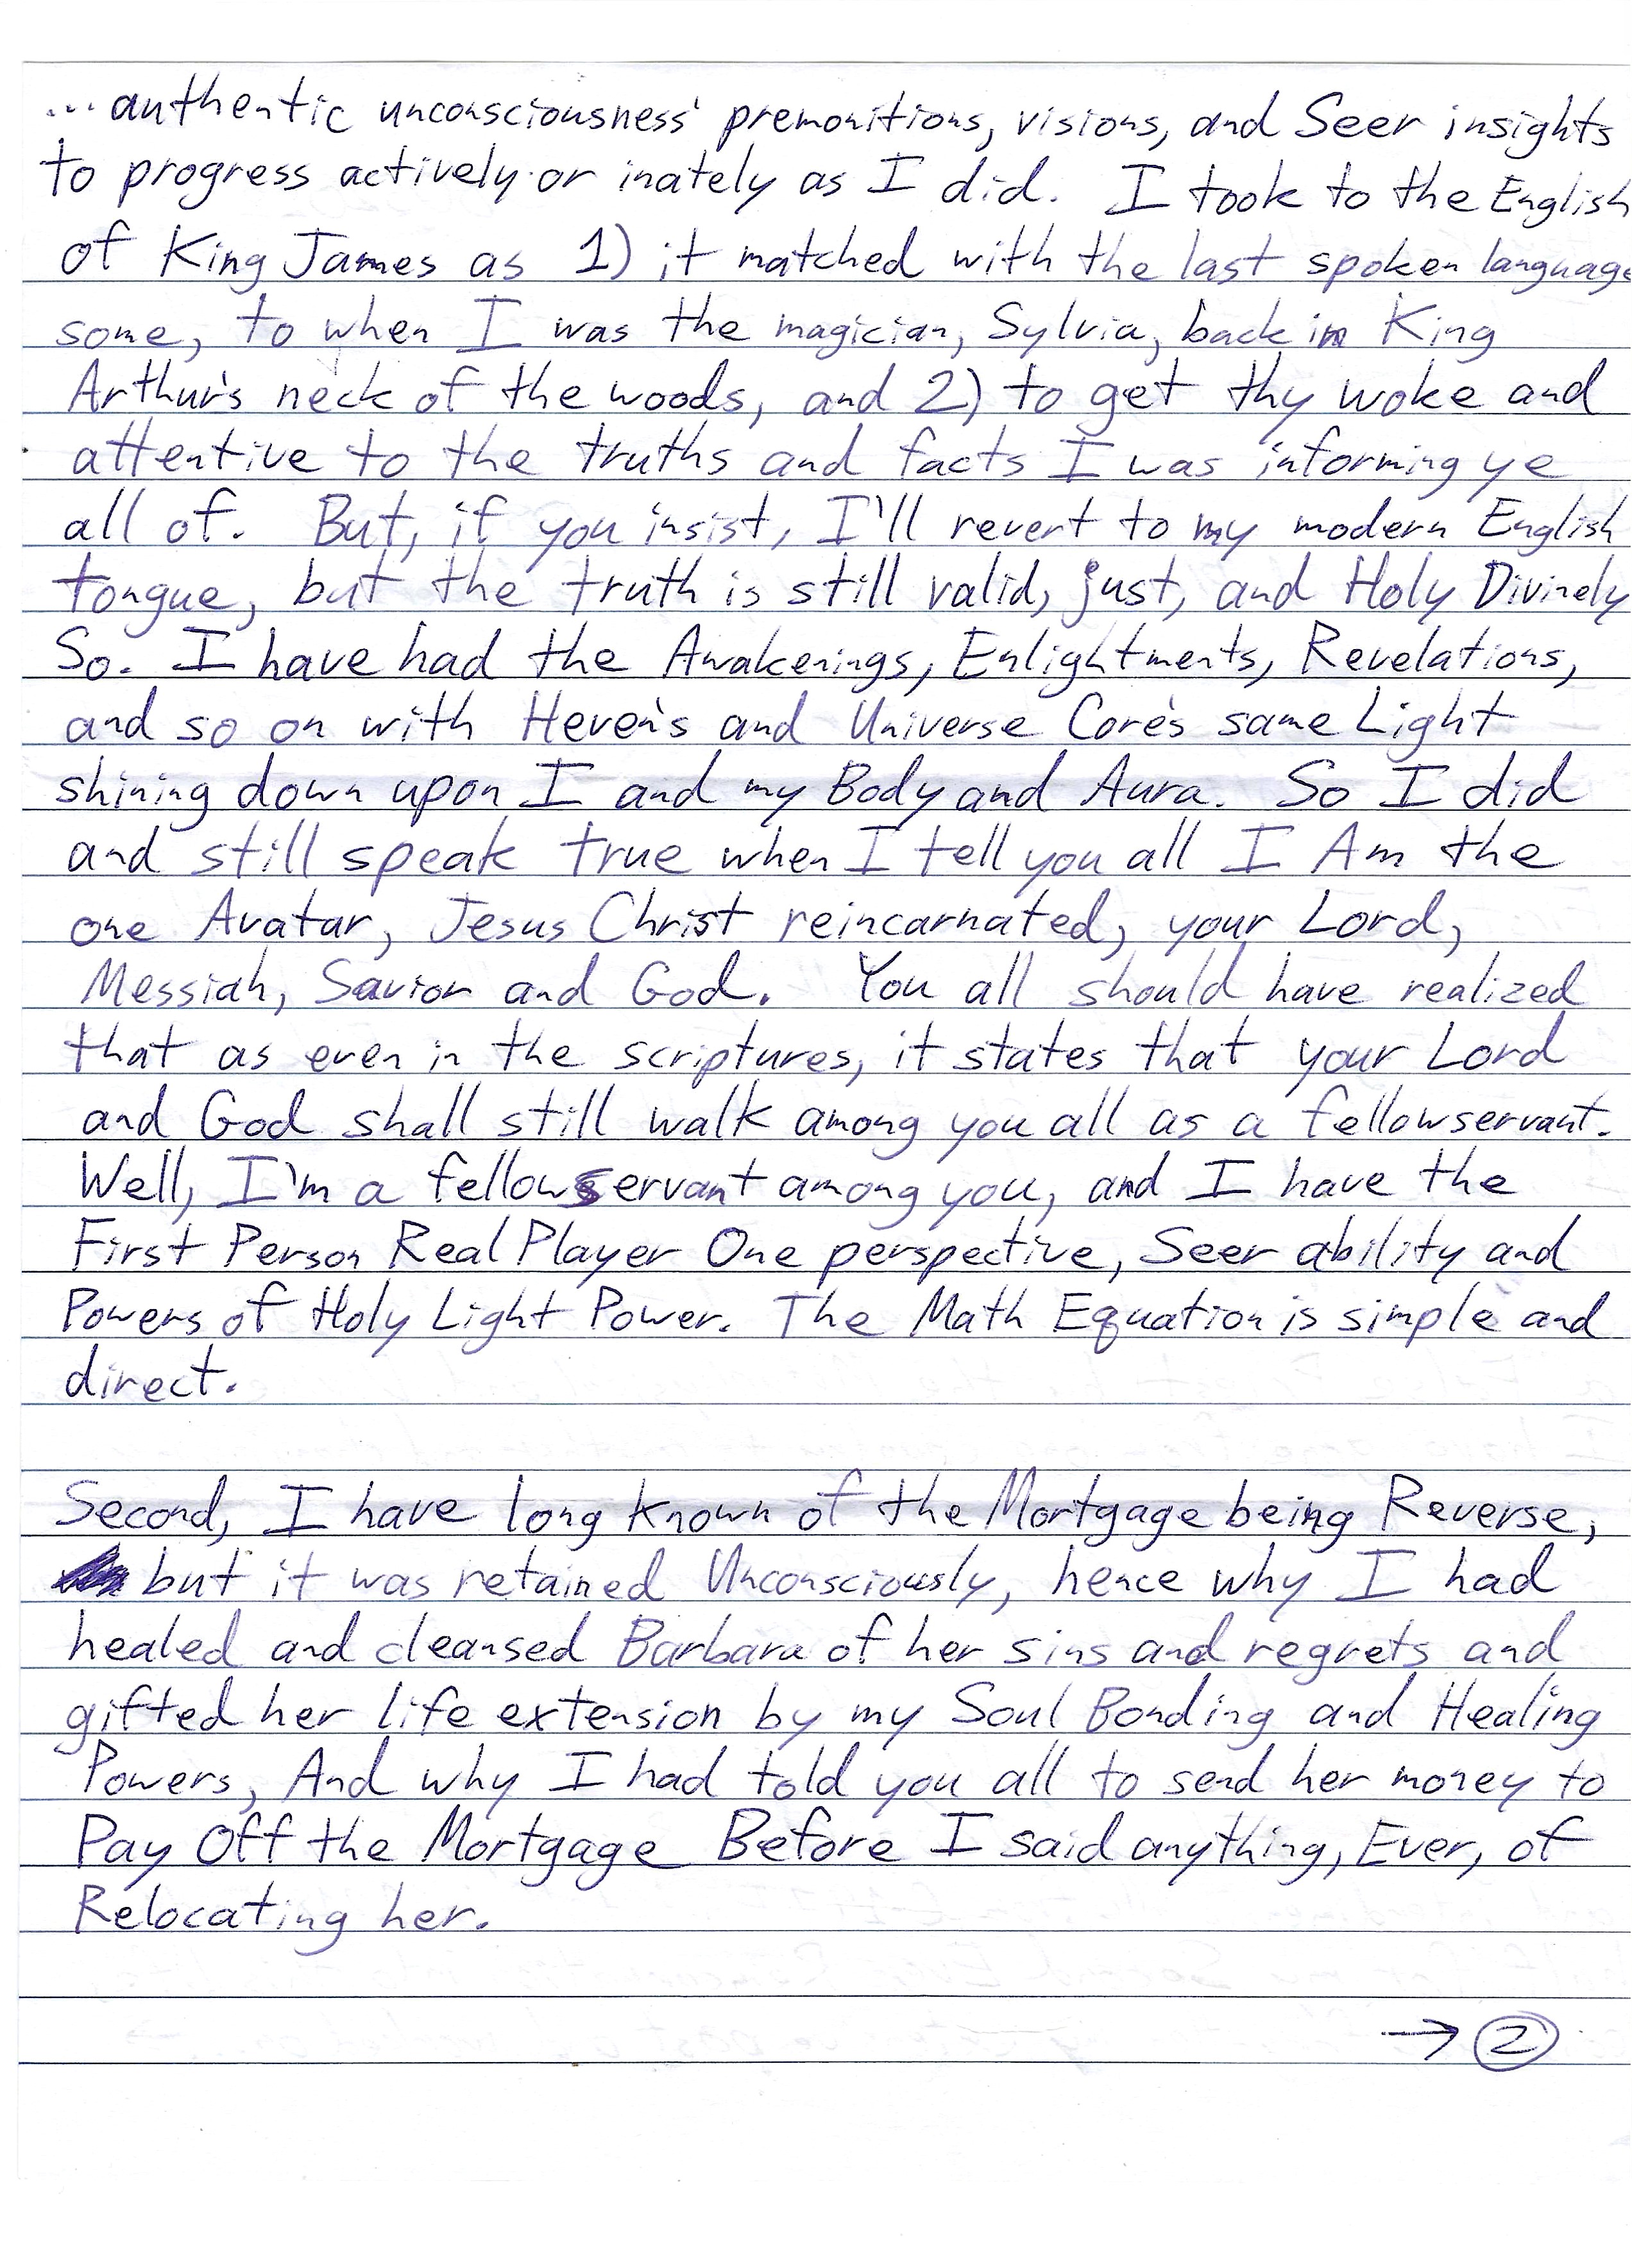 ... authentic unconsciousness' premonitions, visions, and Seer insights
to progress actively or inately as I did. I took to the English
of King James as 1) it matched with the last spoken language
some, to when I was the magician, Sylvia, back in King
Arthur's neck of the woods, and 2) to get thy woke and
attentive to the truths and facts I was informing ye
all of. But, if you insist, I'll revert to my modern English
tongue, but the truth is still valid, just, and Holy Divinely
So. I have had the Awakenings, Enlightments, Revelations,
and so on with Heven's and Universe Core's same Light
shining down upon I and my Body and Aura. So I did
and still speak true when I tell you all I Am the
one Avatar, Jesus Christ reincarnated, your Lord,
Messiah, Savior and God. You all should have realized
that as even in the scriptures, it states that your Lord
and God shall still walk among you all as a fellowservant.
Well, I'm a fellowservant among you, and I have the
First Person Real Player One perspective, Seer ability and
Powers of Holy Light Power. The Math Equation is simple and
direct.
Second, I have long known of the Mortgage being Reverse,
but it was retained Unconsciously, hence why I had
healed and cleansed Barbara of her sins and regrets and
gifted her life extension by my Soul Bonding and Healing
Powers, And why I had told you all to send her money to
Pay Off the Mortgage Before I said anything, Ever, of
Relocating her.
→ 2